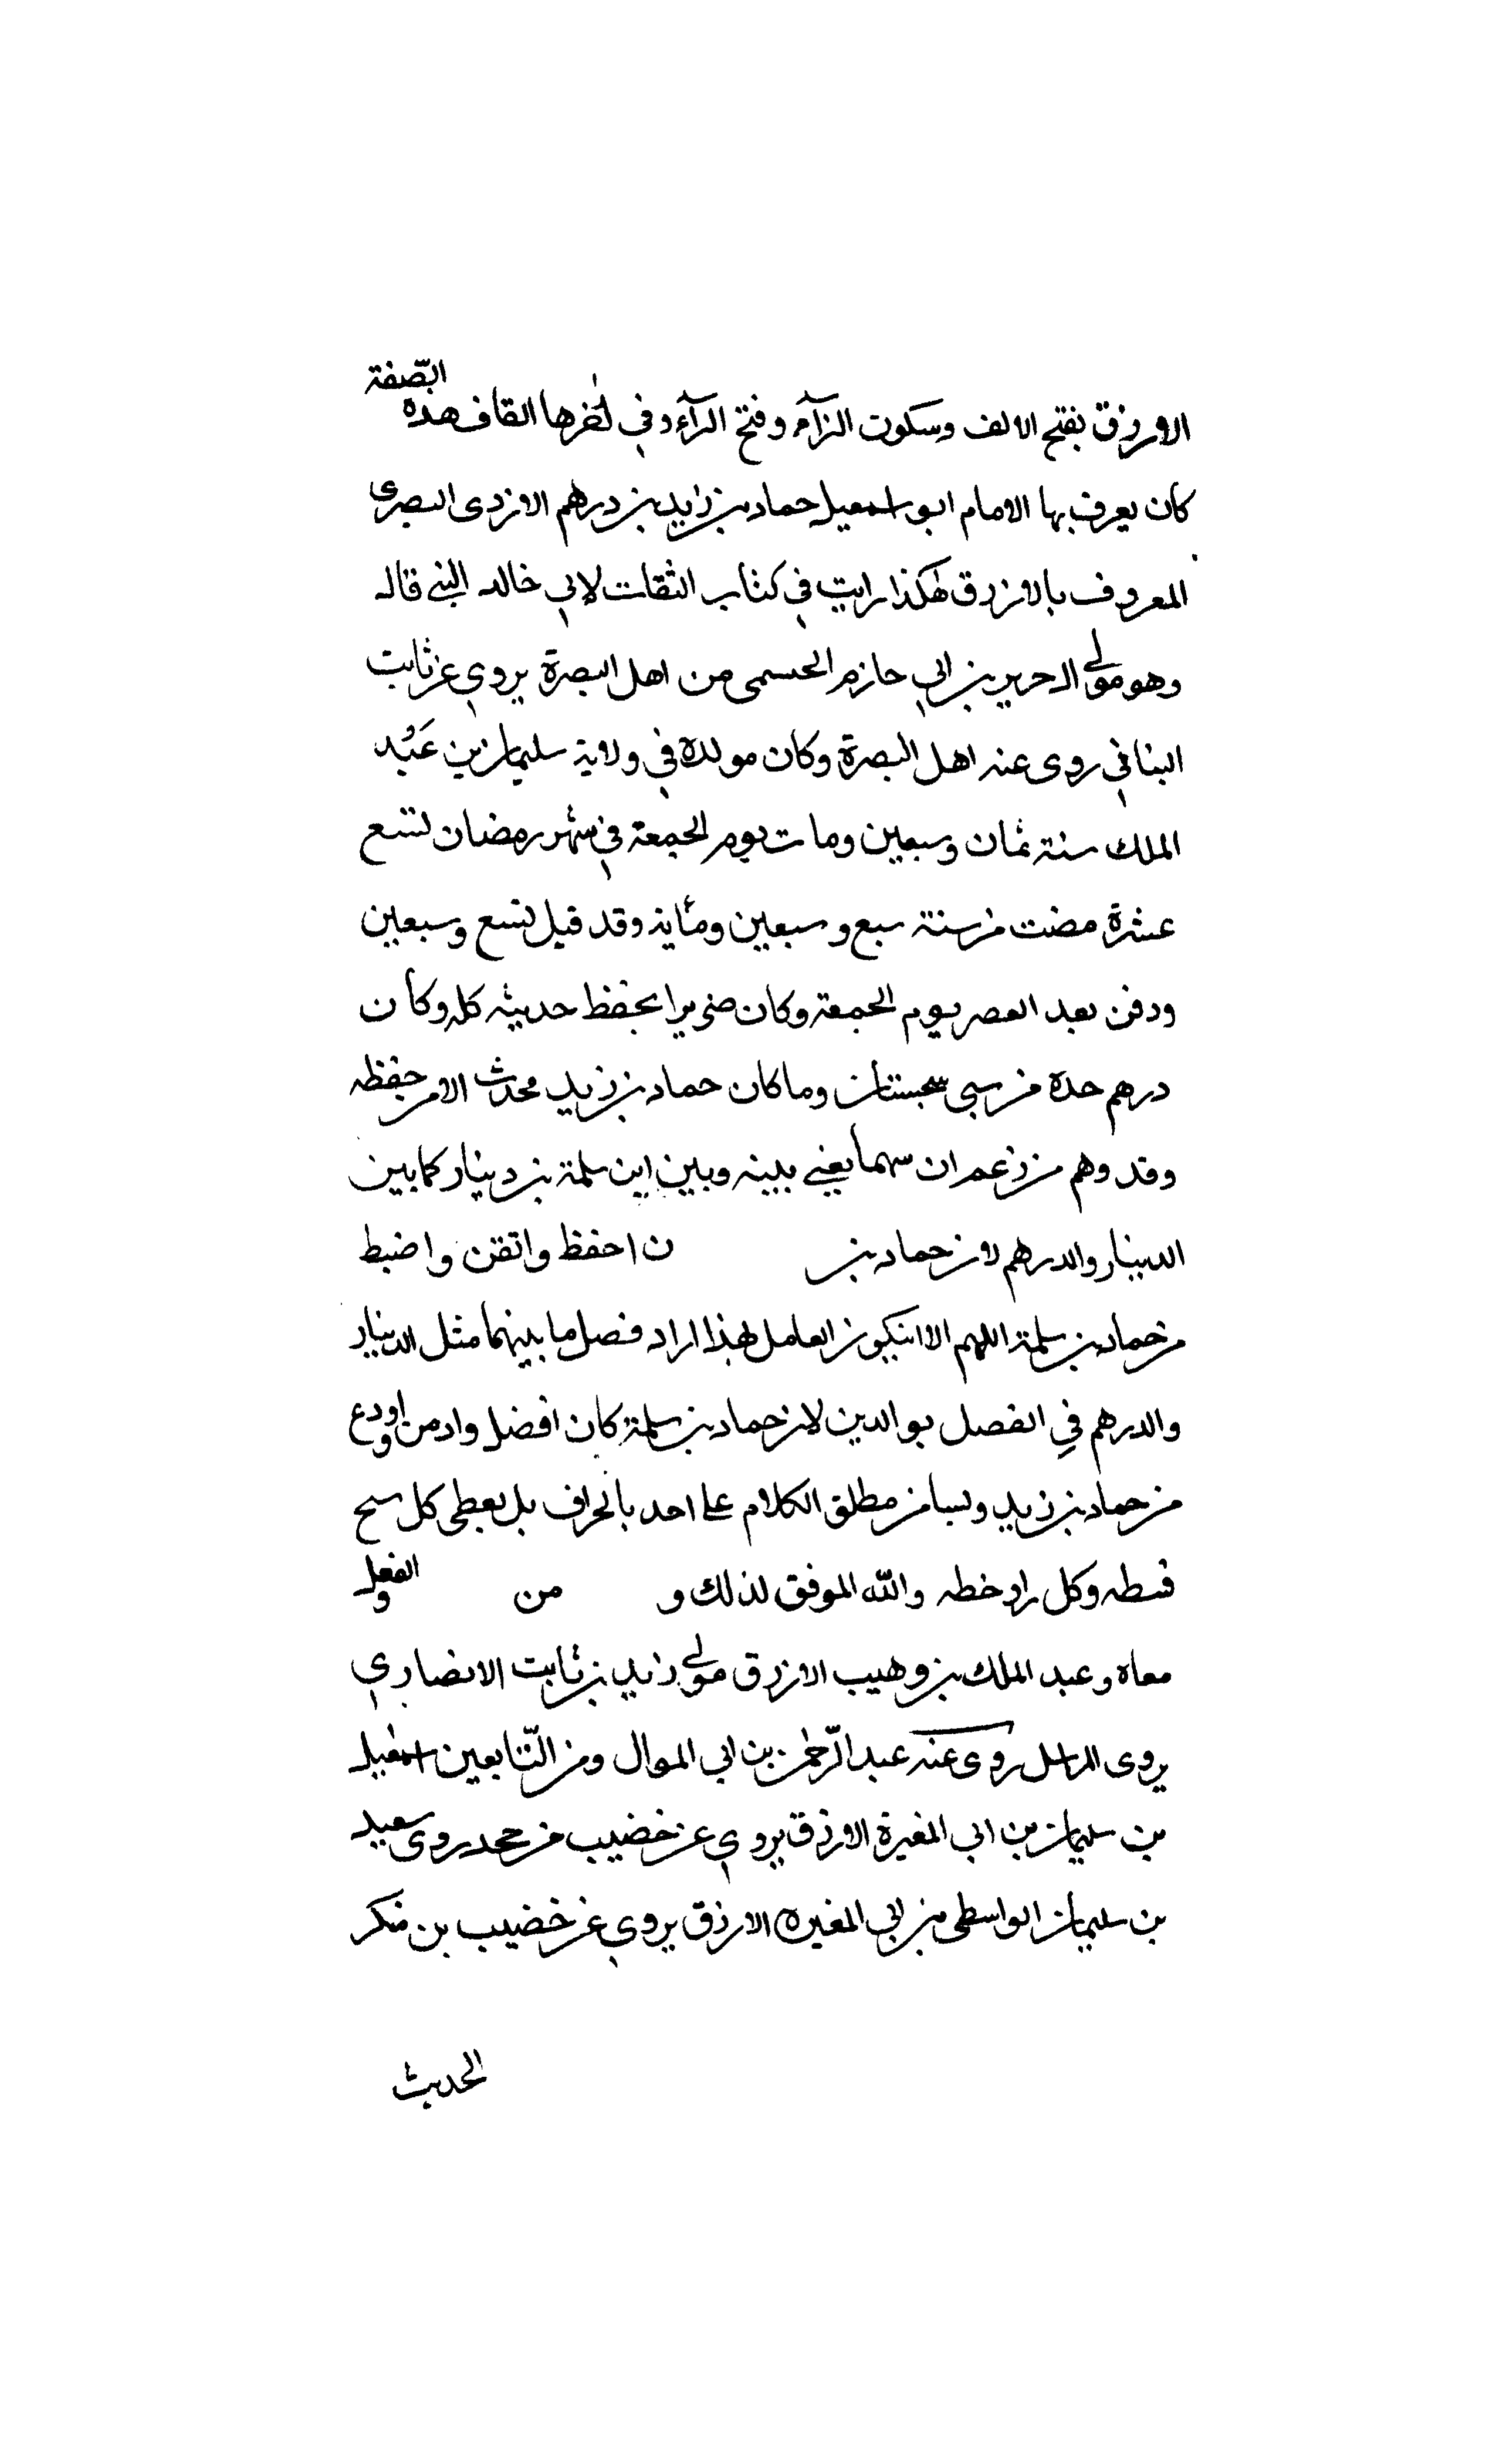 الازرق بفتح الالف وسكون الزآء وفتح الرآء وفي اٰخرها القاف هذه الصّفة
كان يعرف بها الامام ابو اسمعيل حماد بن زايد بن درهم الازدى البصرى
المعروف بالازرق هٰكذا رايت في كتاب الثقات لابي خالد البني قاله
وهو مولى ال حرير بن ابي حازم الحسمى من اهل البصرة يروي عن ثابت
البنافي روى عنه اهل البصرة وكان مولده في ولاية سليمان بن عَبُد
الملك سنة ثمان وسبعين ومات يوم الجمعة في شهر رمضان لتسع
عشرة مضت من سنة سبع وسبعين ومئاية وقد قيل تسع وسبعين
ودفن بعد العصر يوم الجمعة وكان ضريرا يحفظ حديثه كله وكان
درهم حده من سبي سجستان وما كان حماد بن زيد محدث الامن حفظه
وقد وهم من زعم ان سهما يغني بينه وبين ابن سلمة بن دينار كما بين
الدينار والدرهم لان حماد بن ن احفظ واتقن واضبط
من حماد بن سلمة اللهم الا ان يكون العامل بهذا اراد فصل ما بينهما مثل الدينار
والدرهم في الفصل بو الدين لان حماد بن سلمة كان افضل وادمن واودع
من حماد بن زيد ولسنا من مطلق الكلام على احد بالحراف بل يعطى كل سح
قسطه وكل راو خطه والله الموفق لذلك و من الفعل و
معاه وعبد الملك بن وهيب الازرق مولى زايد بن ثابت الانصاري
يروى المراسل روى عنه عبد الرّحمٰن بن ابي الموال ومن التّابعين اسمٰعيل
بن سليمان بن ابي المغيرة الازرق يروي عن خضيب من جحد روى سعيد
بن سليمان الواسطى من ابي المغيره الازرق يروي عن خضيب بن منكر
الحديث